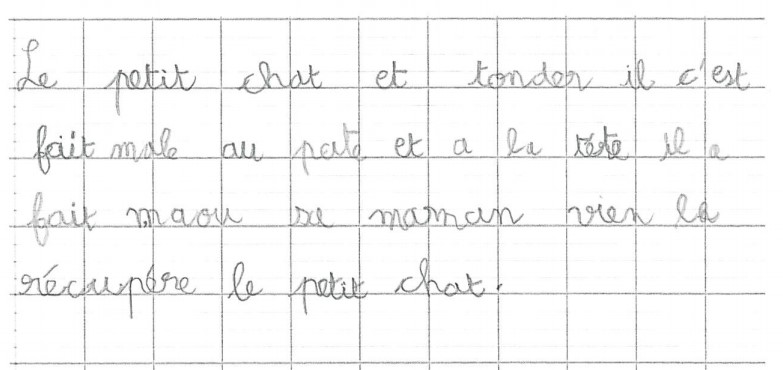 Le petit chat et tonder il c'est
fait male au pate et a la tête il a
fait maou sa maman vien la
récupére le petit chat.